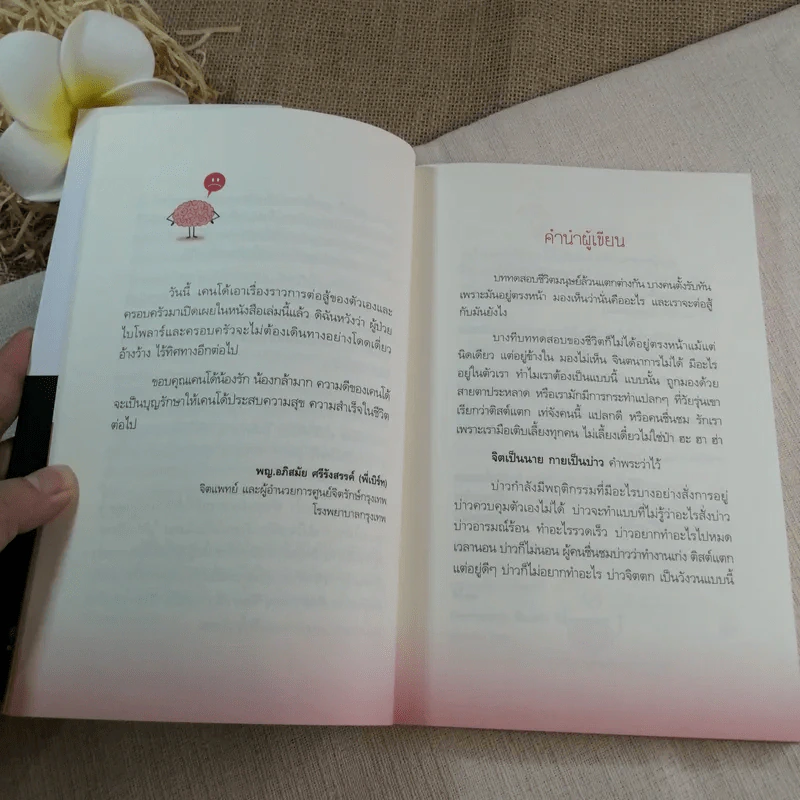 วันนี้ เคนโด้เอาเรื่องราวการต่อสู้ของตัวเองและ
ครอบครัวมาเปิดเผยในหนังสือเล่มนี้แล้ว ดิฉันหวังว่า ผู้ป่วย
ไบโพลาร์และครอบครัวจะไม่ต้องเดินทางอย่างโดดเดี่ยว
อ้างว้าง ไร้ทิศทางอีกต่อไป
ขอบคุณเคนโด้น้องรัก น้องกล้ามาก ความดีของเคนโด้
จะเป็นบุญรักษาให้เคนโด้ประสบความสุข ความสำเร็จในชีวิต
ต่อไป
พญ.อภิสมัย ศรีรังสรรค์ (พี่เบิร์ท)
จิตแพทย์ และผู้อำนวยการศูนย์จิตรักษ์กรุงเทพ
โรงพยาบาลกรุงเทพ
คำนำผู้เขียน
บททดสอบชีวิตมนุษย์ล้วนแตกต่างกัน บางคนตั้งรับทัน
เพราะมันอยู่ตรงหน้า มองเห็นว่านั่นคืออะไร และเราจะต่อสู้
กับมันยังไง
บางทีบททดสอบของชีวิตก็ไม่ได้อยู่ตรงหน้าแม้แต่
นิดเดียว แต่อยู่ข้างใน มองไม่เห็น จินตนาการไม่ได้ มีอะไร
อยู่ในตัวเรา ทำไมเราต้องเป็นแบบนี้ แบบนั้น ถูกมองด้วย
สายตาประหลาด หรือเรามักมีการกระทำแปลกๆ ที่วัยรุ่นเขา
เรียกว่าติสต์แตก เท่จังคนนี้ แปลกดี หรือคนชื่นชม รักเรา
เพราะเรามือเติบเลี้ยงทุกคน ไม่เลี้ยงเดี่ยวไม่ใช่ป๋า ฮะ ฮา ฮ่า
จิตเป็นนาย กายเป็นบ่าว คำพระว่าไว้
บ่าวกำลังมีพฤติกรรมที่มีอะไรบางอย่างสั่งการอยู่
บ่าวควบคุมตัวเองไม่ได้ บ่าวจะทำแบบที่ไม่รู้ว่าอะไรสั่งบ่าว
บ่าวอารมณ์ร้อน ทำอะไรรวดเร็ว บ่าวอยากทำอะไรไปหมด
เวลานอน บ่าวก็ไม่นอน ผู้คนชื่นชมบ่าวว่าทำงานเก่ง ติสต์แตก
แต่อยู่ดีๆ บ่าวก็ไม่อยากทำอะไร บ่าวจิตตก เป็นวังวนแบบนี้